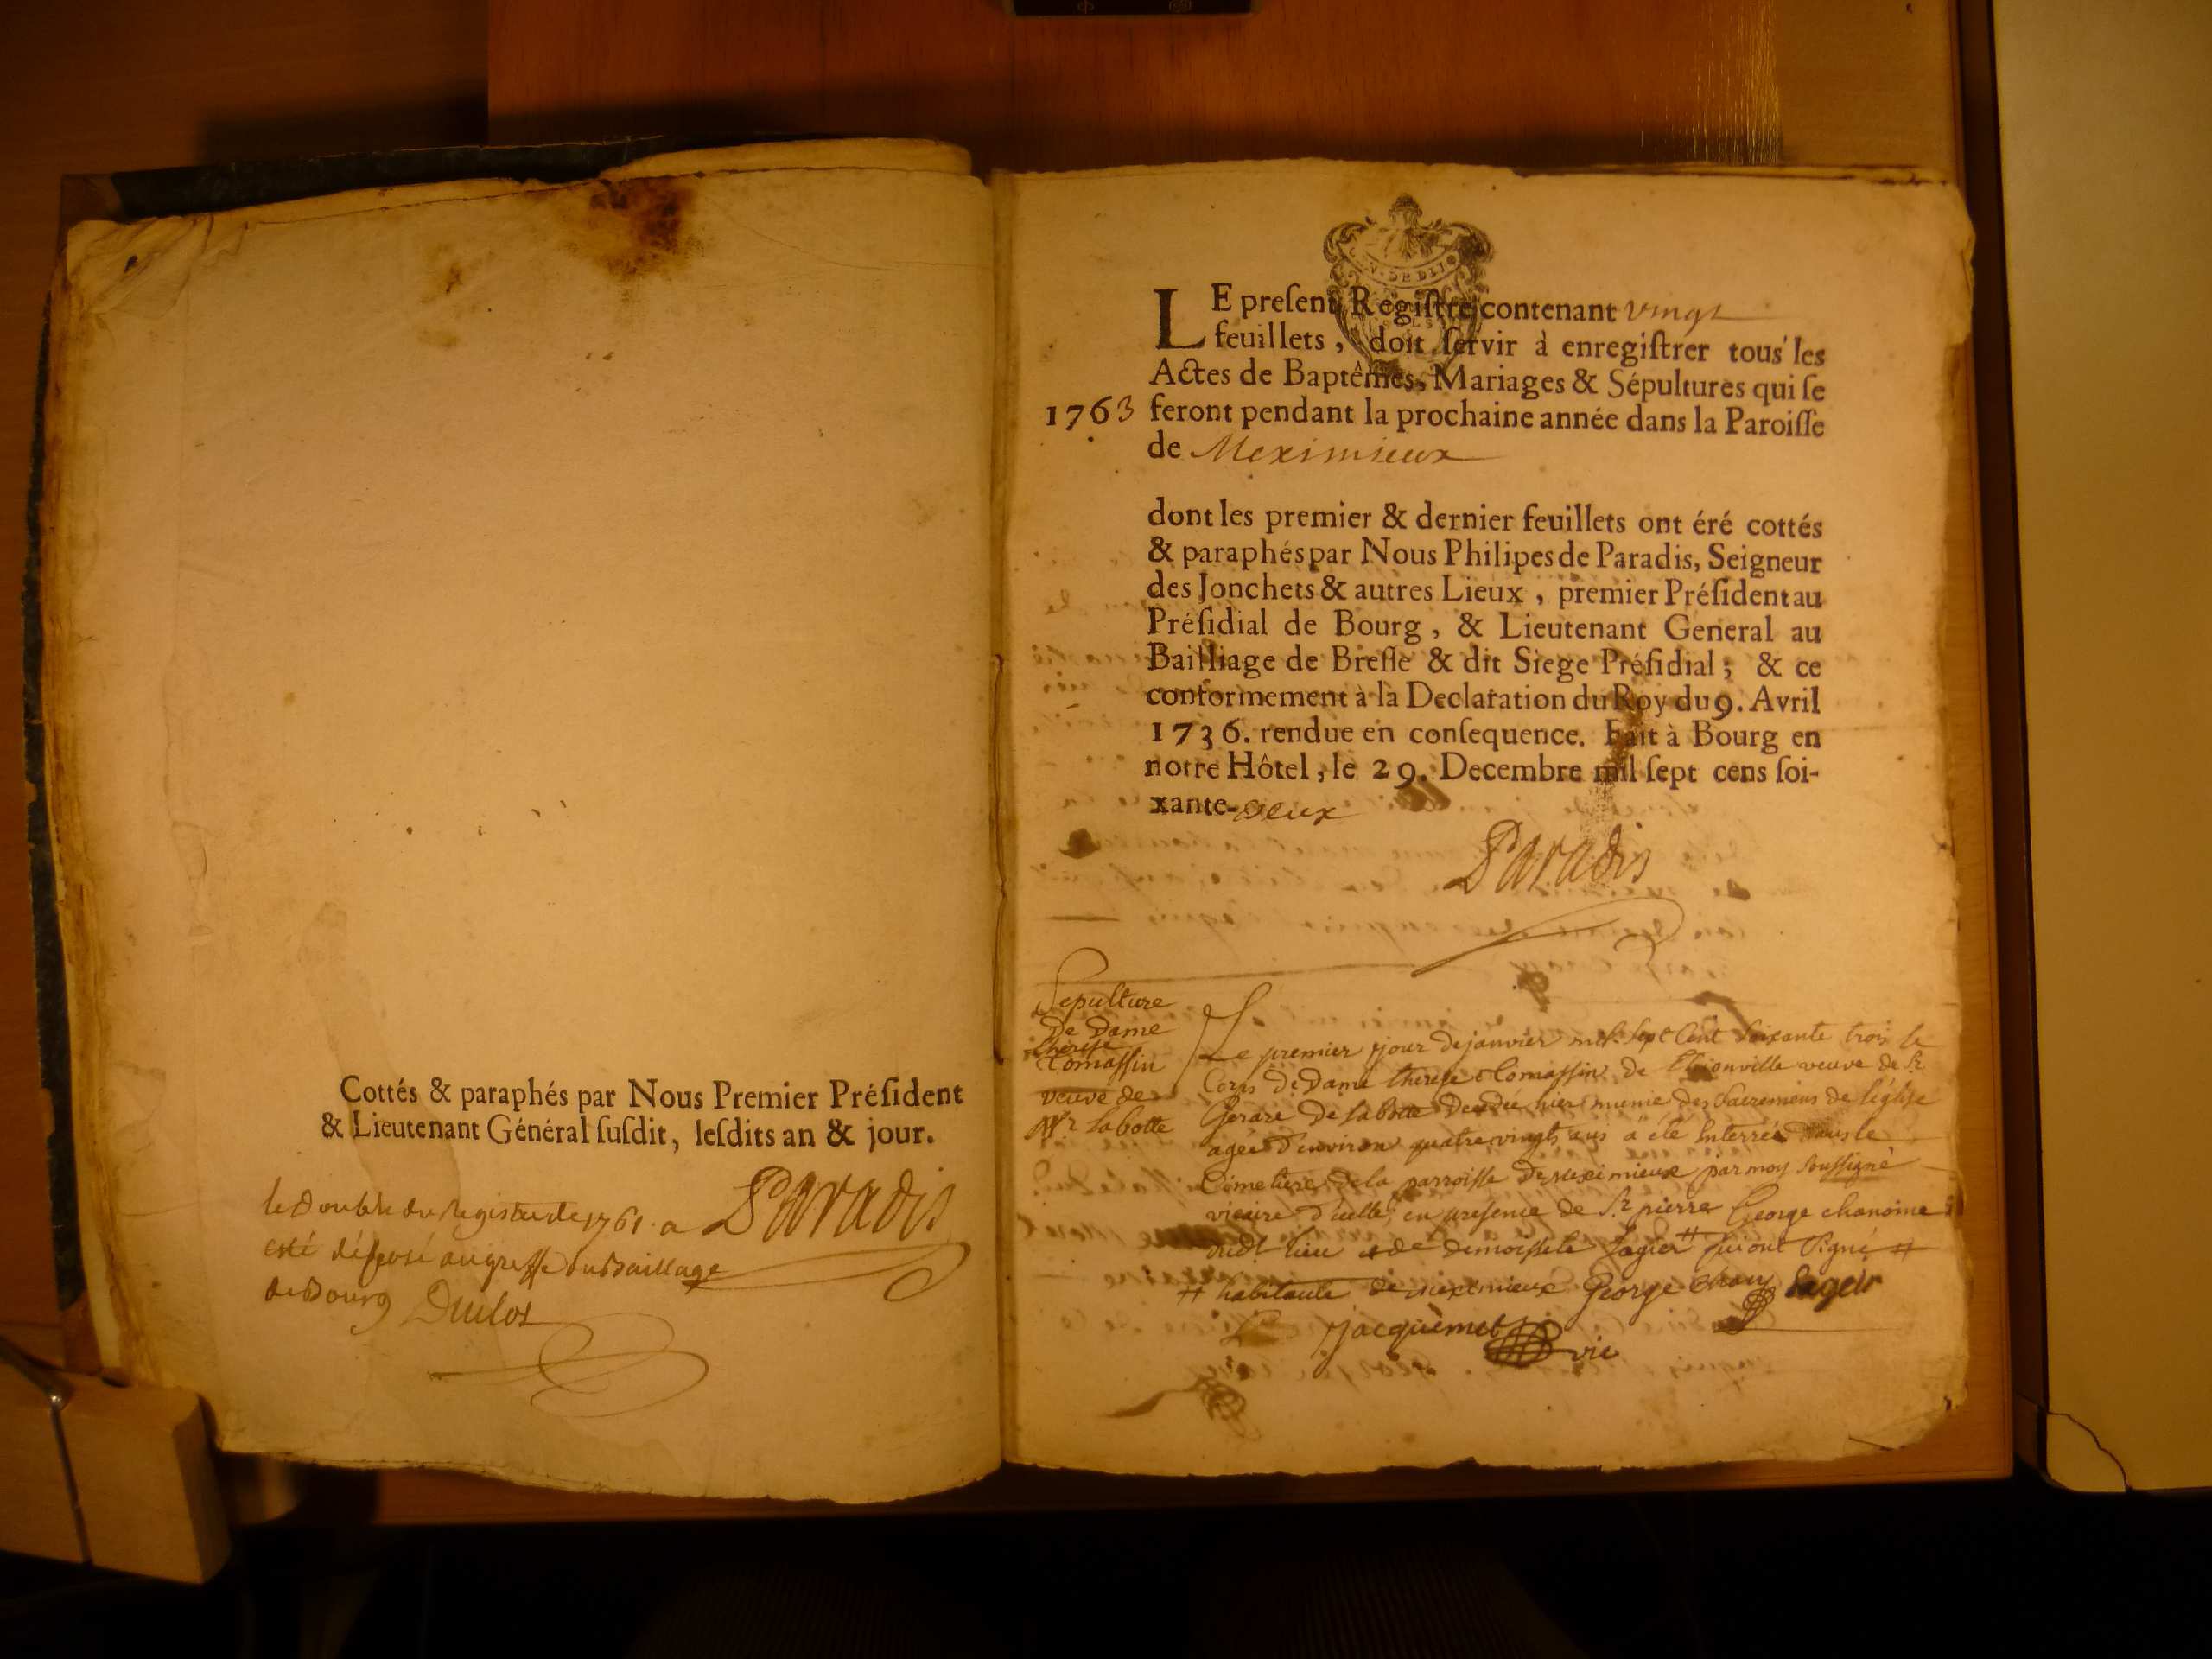 Cottés & paraphés par Nous Premier Président
& Lieutenant Général susdit, lesdits an & jour.
le Double du Registre de 1761. a Paradis
esté déposé au greffe du Bailliage
de Bourg Duclos
LE present Registre contenant vingt
feuillets, doit servir à enregistrer tous les
Actes de Baptêmes, Mariages & Sépultures qui se
1763 feront pendant la prochaine année dans la Paroisse
de Meximieux
dont les premier & dernier feuillets ont éré cottés
& paraphés par Nous Philipes de Paradis, Seigneur
des Jonchets & autres Lieux, premier Président au
Présidial de Bourg, & Lieutenant General au
Bailliage de Bresse & dit Siege Présidial; & ce
conformement à la Declaration du Roy du 9. Avril
1736. rendue en consequence. Fait à Bourg en
notre Hôtel, le 29. Decembre mil sept cens soi-
xante-deux
Paradis
Sepulture
De Dame
therese
Comassin
veuve de
Mr Labotte
Le premier jour de janvier mil sept Cent Soixante trois le
Corps De Dame therese Comassin de Thionville veuve de Sr
Gerard De Labotte hier munie des Sacremens de l'église
agée d'environ quatre vingts ans a été Enterrée dans le
Cimetiere de la parroisse De meximieux par moy Soussigné
vicaire d'icelle, en presence de Sr pierre George chanoine
dudt lieu et de demoiselle Lagier # qui ont Signé #
# habitante de meximieux George Lageir
Jacquemet vic